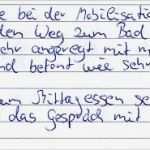 e bei der Mobilisatio
den Weg zum Bad
sehr angeregt mit m
und betont wie sehr
um Mittagessen se
das Gespräch mit